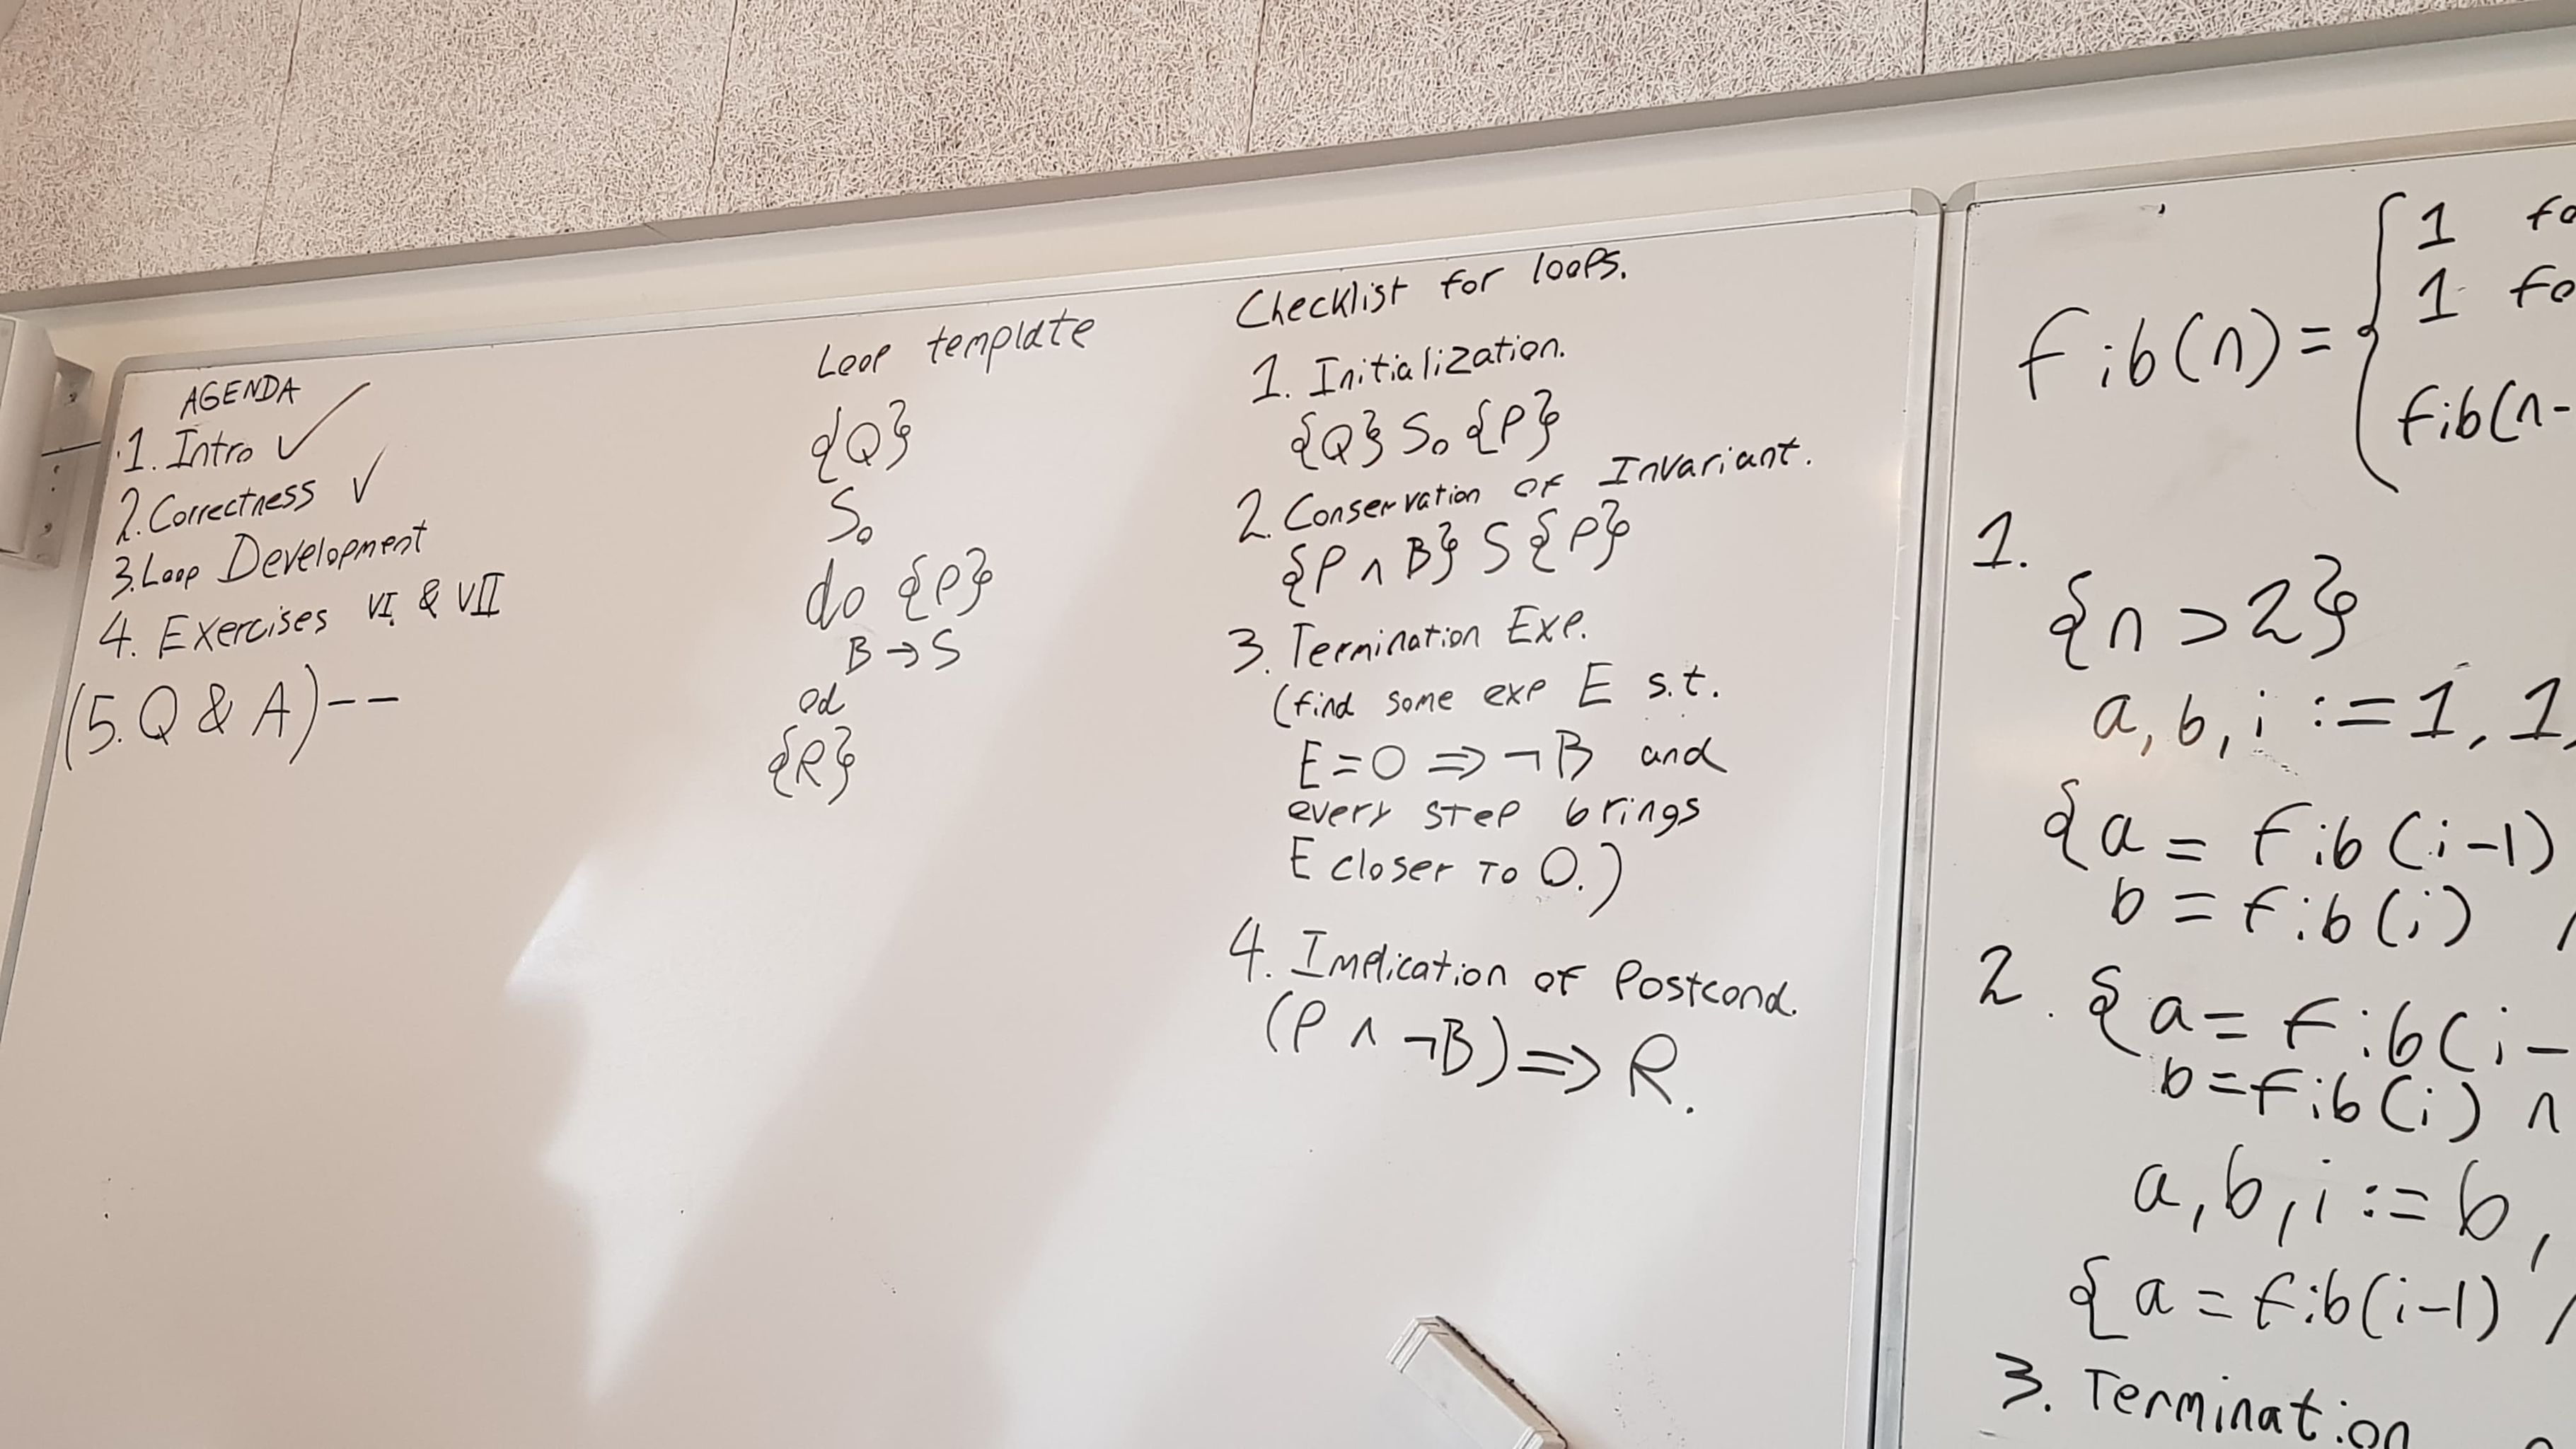 AGENDA
1. Intro ✓
2. Correctness ✓
3. Loop Development
4. Exercises VI & VII
(5. Q & A)--
Loop template
{Q}
S₀
do {P}
B → S
od
{R}
Checklist for loops.
1. Initialization.
{Q} S₀ {P}
2. Conservation of Invariant.
{P ∧ B} S {P}
3. Termination Exp.
(find some exp E s.t.
E = 0 ⇒ ¬B and
every step brings
E closer to 0.)
4. Implication of Postcond.
(P ∧ ¬B) ⇒ R.
fib(n) = {
1 fo
1 fo
fib(n-
1.
{n > 2}
a, b, i := 1, 1,
{a = fib(i-1)
b = fib(i)
2. {a = fib(i-
b = fib(i) ∧
a, b, i := b,
{a = fib(i-1)
3. Termination